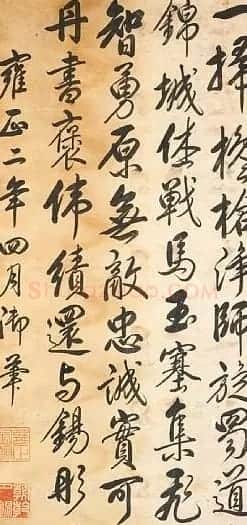 一掃欃槍淨師旋蜀道
錦城休戰馬玉塞集飛
智勇原無敵忠誠實可
丹書褒偉績還与錫彤
雍正二年四月御筆